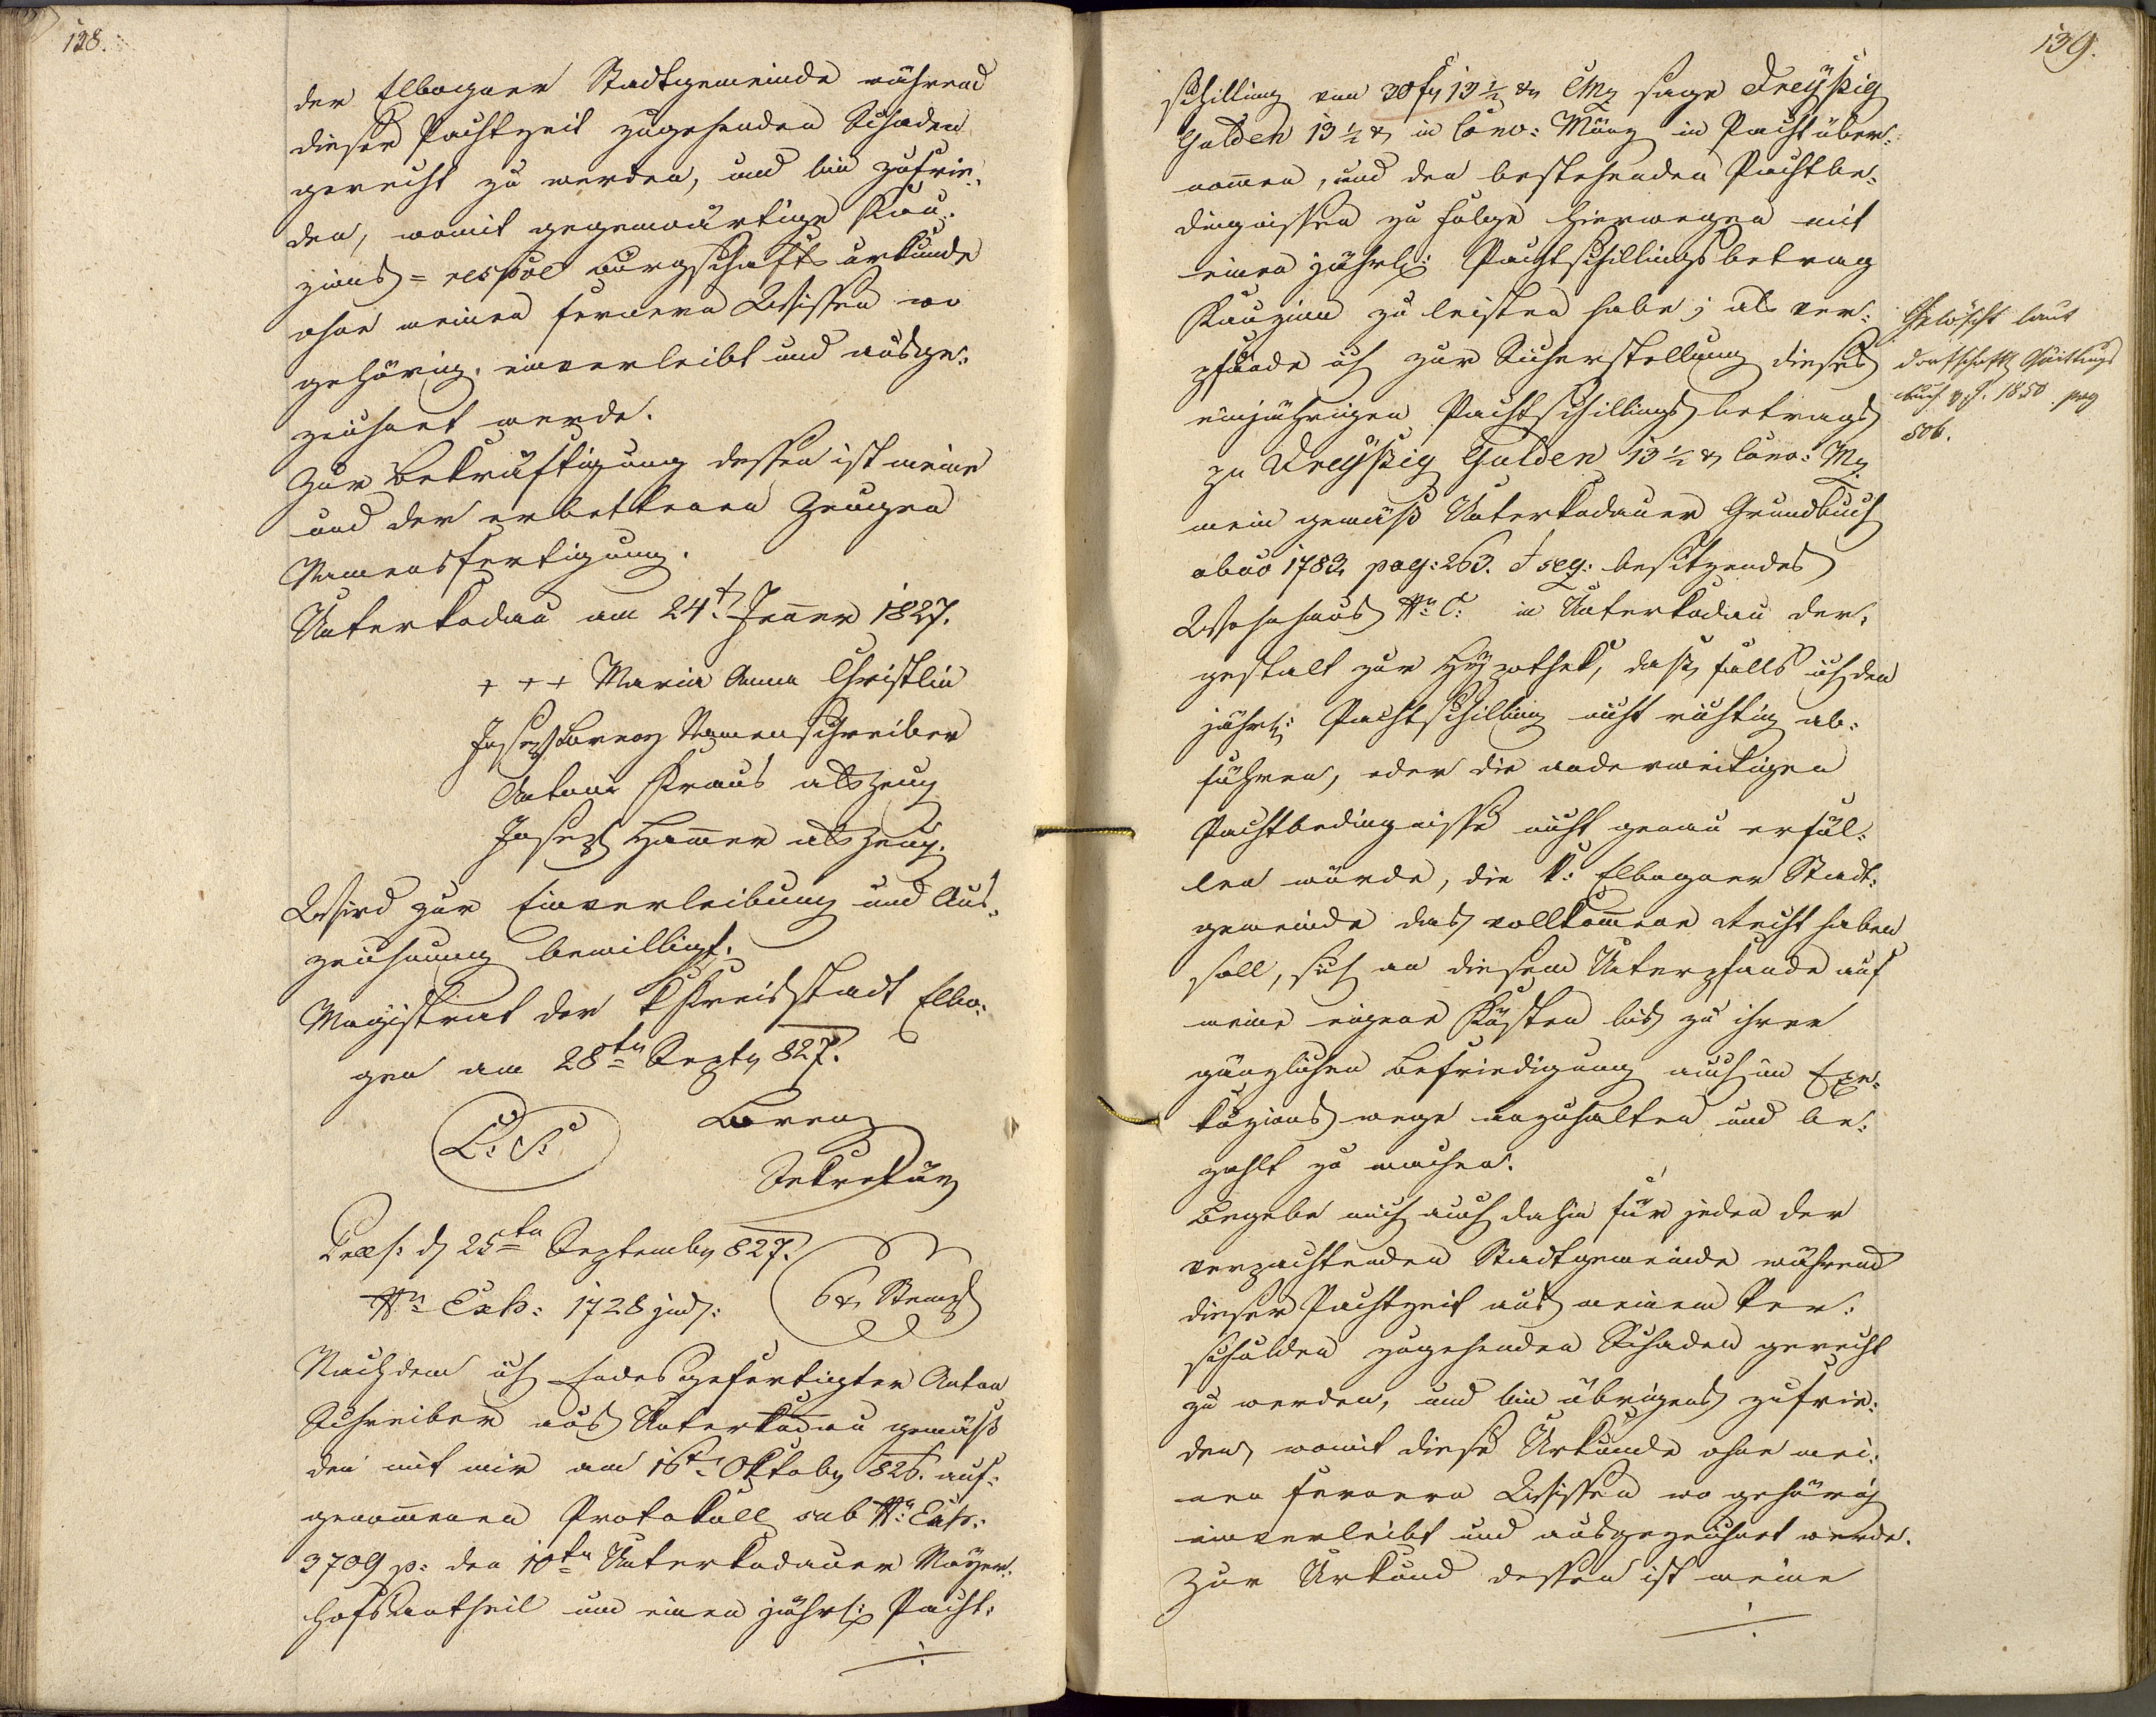 138.
der Elbogner Stadtgemeinde während
dieser Pachtzeit zugehenden Schaden
gerecht zu werden, und bin zufrie-
den, womit gegenwärtige Kau-
zions = respve Bürgschafts urkunde
ohne meinen fernern Wissen wo
gehörig einverleibt und ausge-
zeichnet werde.
Zur Bekräftigung dessen ist meine
und der erbettenen Zeugen
Namensfertigung.
Unterkodau am 24t. Jenner 1827.
+ + + Maria Anna Christlin
Joseph Lorenz Namenschreiber
Antoni Kraus als Zeug
Joseph Hammer als Zeug.
Wird zur Einverleibung und Aus-
zeichnung bewilligt.
Magistrat der k Kreisstadt Elbo-
gen am 28ten Septr 827.
L: S:
Lorenz
Sekretär
Präs: d 25ten September 827.
Nro Exh: 1728 jud:
6 xr Stempl
Nachdem ich Endesgefertigter Anton
Schreiber aus Unterkodau gemäß
den mit mir am 16t. Oktober 826. auf-
genommenen Protokoll sub Nro Exh:
3709 p: den 10ten Unterkodauer Mayer-
hofsantheil um einen jährl: Pacht-
139.
schilling von 30 f 13 ½ xr CMz sage Dreyßig
Gulden 13 ½ xr in Conv: Münz in Pacht über-
nommen, und den bestehenden Pachtbe-
dingnissen zu Folge hierwegen mit
einen jährl: Pachtschillingsbetrag
Kauzion zu leisten habe; als ver-
pfände ich zur Sicherstellung dieses
einjährigen Pachtschillings betrags
zu Dreyßig Gulden 13 ½ xr Conv: Mz
mein gemäß Unterkodauer Grundbuch
abao 1783 pag: 263. & seq: besitzendes
Wohnhaus Nro C: in Unterkodau der-
gestalt zur Hypothek, daß, falls ich den
jährl: Pachtschilling nicht richtig ab-
führen, oder die anderweitigen
Pachtbedingnisse nicht genau erfül-
len würde, die k: Elbogner Stadt-
gemeinde das vollkommene Recht haben
soll, sich an diesem Unterpfande auf
meine eigene Kösten bis zu ihrer
gänzlichen Befriedigung auch im Exe-
kuzions wege anzuhalten und be-
zahlt zu machen.
Begebe mich auch dahin für jeden der
verpachtenden Stadtgemeinde während
dieser Pachtzeit aus meinem Ver-
schulden zugehenden Schaden gerecht
zu werden, und bin übrigens zufrie-
den, womit diese Urkunde ohne mei-
nen fernern Wissen wo gehörig
einverleibt und ausgezeichnet werde.
Zur Urkund dessen ist meine
Gelöscht laut
dortschftl Quittungs
buch v. J. 1850. pag
506.